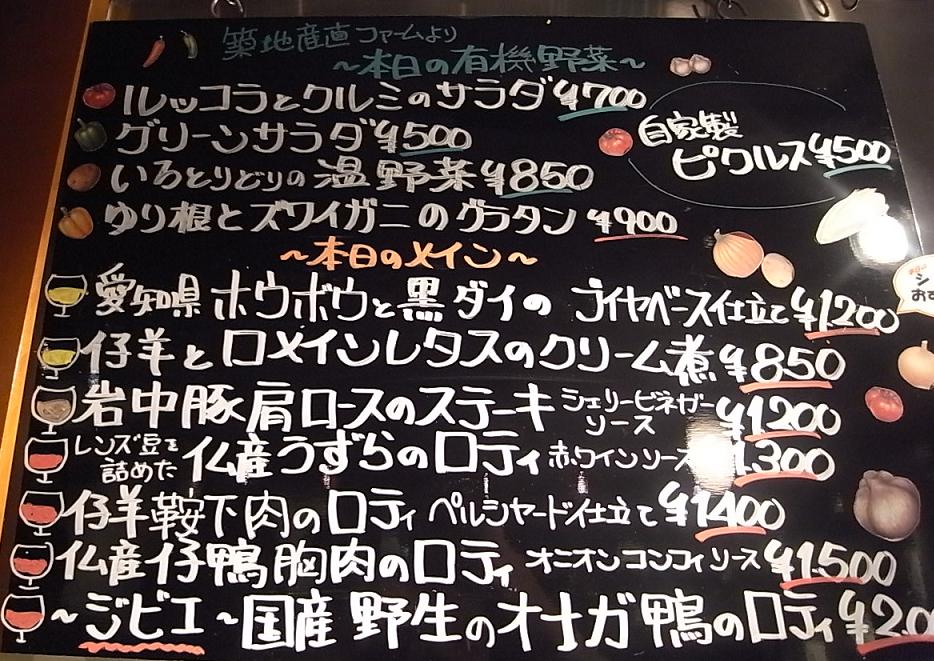 築地産直ファームより
~本日の有機野菜~
ルッコラとクルミのサラダ ¥700
グリーンサラダ ¥500
自家製
ピクルス ¥500
いろとりどりの温野菜 ¥850
ゆり根とズワイガニのグラタン ¥900
~本日のメイン~
愛知県 ホウボウと黒ダイの ブイヤベース仕立て ¥1,200
仔羊とロメインレタスのクリーム煮 ¥850
岩中豚肩ロースのステーキ シェリービネガー
ソース ¥1200
レンズ豆を
詰めた 仏産うずらのロティ 赤ワインソース 1,300
仔羊鞍下肉のロティ ペルシヤード仕立て ¥1400
仏産仔鴨胸肉のロティ オニオンコンフィソース ¥1,500
~ジビエ~国産野生のオナガ鴨のロティ